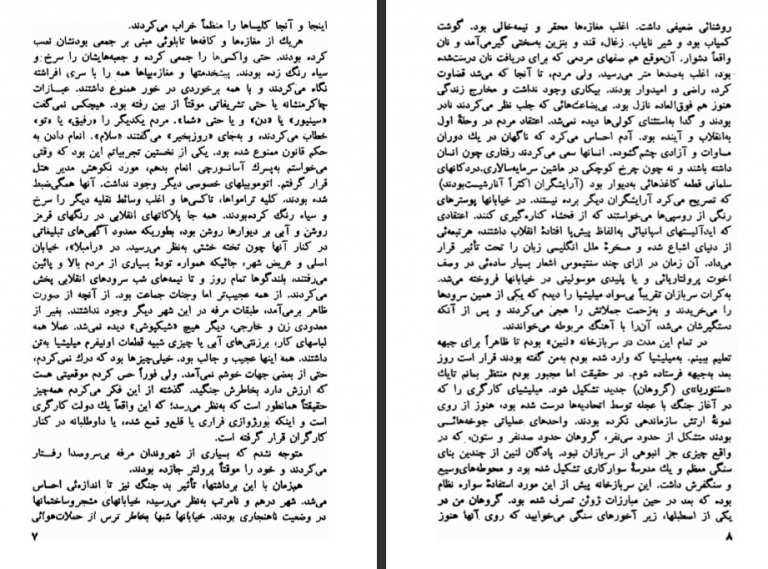 اینجا و آنجا کلیساها را منظماً خراب می‌کردند.
هریك از مغازه‌ها و کافه‌ها تابلوئی مبنی بر جمعی بودنشان نصب
کرده بودند. حتی واکسی‌ها را جمعی کرده و جعبه‌هایشان را سرخ و
سیاه رنگ زده بودند. پیشخدمتها و مغازه‌چیها همه را با سری افراشته
نگاه می‌کردند و با همه برخوردی در خور همنوع داشتند. عبارات
چاکرمنشانه یا حتی تشریفاتی موقتاً از بین رفته بود. هیچکس نمی‌گفت
«سینیور» یا «دن» و یا حتی «شما». مردم یکدیگر را «رفیق» یا «تو»
خطاب می‌کردند، و به‌جای «روزبخیر» می‌گفتند «سلام». انعام دادن به
حکم قانون ممنوع شده بود. یکی از نخستین تجربیاتم این بود که وقتی
می‌خواستم به‌پسرك آسانسورچی انعام بدهم، مورد نکوهش مدیر هتل
قرار گرفتم. اتومبیلهای خصوصی دیگر وجود نداشت. آنها همگی‌ضبط
شده بودند. کلیه ترامواها، تاکسی‌ها و اغلب وسائط نقلیه دیگر را سرخ
و سیاه رنگ کرده‌بودند. همه جا پلاکاتهای انقلابی در رنگهای قرمز
روشن و آبی بر دیوارها روشن بود، بطوریکه معدود آگهی‌های تبلیغاتی
در کنار آنها چون تخته خشتی به‌نظر می‌رسید. در «رامبلا»، خیابان
اصلی و عریض شهر، جائیکه همواره تودهٔ بسیاری از مردم بالا و پائین
می‌رفتند، بلندگوها تمام روز و تا نیمه‌های شب سرودهای انقلابی پخش
می‌کردند. از همه عجیب‌تر اما وجنات جماعت بود. از آنچه از صورت
ظاهر برمی‌آمد، طبقات مرفه در این شهر دیگر وجود نداشتند. بغیر از
معدودی زن و خارجی، دیگر هیچ «شیکپوشی» دیده نمی‌شد. عملا همه
لباسهای کار، برزنتی‌های آبی یا چیزی شبیه قطعات اونیفرم میلیشیا به‌تن
داشتند. همه اینها عجیب و جالب بود. خیلی‌چیزها بود که درك نمی‌کردم،
حتی از بعضی جهات خوشم نمی‌آمد. ولی فوراً حس کردم موقعیتی هست
که ارزش دارد بخاطرش جنگید. گذشته از این فکر می‌کردم همه‌چیز
حقیقتاً همانطور است که به‌نظر می‌رسد؛ که این واقعاً یك دولت کارگری
است و اینکه بورژوازی فراری یا قلع‌و قمع شده، یا داوطلبانه در کنار
کارگران قرار گرفته است.
متوجه نشدم که بسیاری از شهروندان مرفه بی‌سروصدا رفتار
می‌کردند و خود را موقتاً پرولتر جازده بودند.
همزمان با این برداشتها، تأثیر بد جنگ نیز تا اندازه‌ئی احساس
می‌شد. شهر درهم و نامرتب به‌نظر می‌رسید، خیابانهای مشجروساختمانها
در وضعیت ناهنجاری بودند. خیابانها شبها بخاطر ترس از حملات‌هوائی
۷
روشنائی ضعیفی داشت. اغلب مغازه‌ها محقر و نیمه‌خالی بود. گوشت
کمیاب بود و شیر نایاب. زغال، قند و بنزین به‌سختی گیرمی‌آمد و نان
واقعاً دشوار. آن‌موقع هم صفهای مردمی که برای دریافت نان درست‌شده
بود، اغلب به‌صدها متر می‌رسید. ولی مردم، تا آنجا که می‌شد قضاوت
کرد، راضی و امیدوار بودند. بیکاری وجود نداشت و مخارج زندگی
هنوز هم فوق‌العاده نازل بود. بی‌بضاعت‌هائی که جلب نظر می‌کردند نادر
بودند و گدا به‌استثنای کولی‌ها دیده نمی‌شد. اعتقاد مردم در وحلهٔ اول
به‌انقلاب و آینده بود. آدم احساس می‌کرد که ناگهان در یك دوران
مساوات و آزادی چشم‌گشوده. انسانها سعی می‌کردند رفتاری چون انسان
داشته باشند و نه چون چرخ کوچکی در ماشین سرمایه‌سالاری.دردکانهای
سلمانی قطعه کاغذهائی به‌دیوار بود (آرایشگران اکثراً آنارشیست‌بودند)
که تصریح می‌کرد آرایشگران دیگر برده نیستند. در خیابانها پوسترهای
رنگی از روسپی‌ها می‌خواستند که از فحشاء کناره‌گیری کنند. اعتقادی
که ایدآلیستهای اسپانیائی به‌الفاظ پیش‌پا افتادهٔ انقلاب داشتند، هرتبعه‌ئی
از دنیای اشباع شده و مسخرهٔ ملل انگلیسی زبان را تحت تأثیر قرار
می‌داد. آن زمان در ازای چند سنتیموس اشعار بسیار ساده‌ئی در وصف
اخوت پرولتاریائی و یا پلیدی موسولینی در خیابانها فروخته می‌شد.
به‌کرات سربازان تقریباً بی‌سواد میلیشیا را دیدم که یکی از همین سرودها
را می‌خریدند و به‌زحمت جملاتش را هجی می‌کردند و پس از آنکه
دستگیرشان می‌شد، آن‌را با آهنگ مربوطه می‌خواندند.
در تمام این مدت در سربازخانه «لنین» بودم تا ظاهراً برای جبهه
تعلیم ببینم. به‌میلیشیا که وارد شده بودم به‌من گفته بودند قرار است روز
بعد به‌جبهه فرستاده شوم. در حقیقت اما مجبور بودم منتظر بمانم تایك
«سنتوریا»ی (گروهان) جدید تشکیل شود. میلیشیای کارگری را که
در آغاز جنگ با عجله توسط اتحادیه‌ها درست شده بود، هنوز از روی
نمونهٔ ارتش سازماندهی نکرده بودند. واحدهای عملیاتی جوخه‌هائی
بودند متشکل از حدود سی‌نفر، گروهان حدود صدنفر و ستون، که در
واقع چیزی جز انبوهی از سربازان نبود. پادگان لنین از چندین بنای
سنگی معظم و یك مدرسهٔ سوارکاری تشکیل شده بود و محوطه‌های‌وسیع
و سنگفرش داشت. این سربازخانه پیش از این مورد استفادهٔ سواره نظام
بوده که بعد در حین مبارزات ژوئن تصرف شده بود. گروهان من در
یکی از اسطبلها، زیر آخورهای سنگی می‌خوابید که روی آنها هنوز
۸